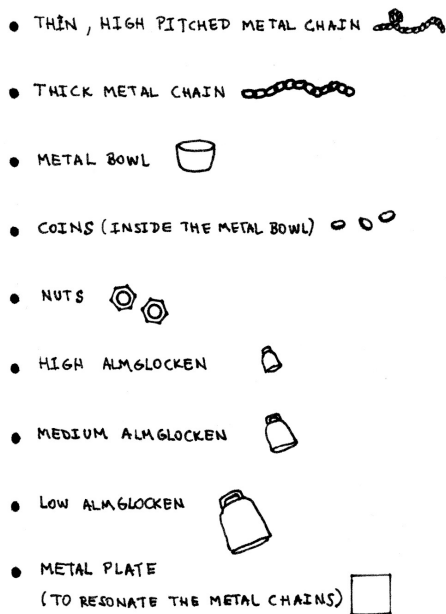 • THIN, HIGH PITCHED METAL CHAIN
• THICK METAL CHAIN
• METAL BOWL
• COINS (INSIDE THE METAL BOWL)
• NUTS
• HIGH ALMGLOCKEN
• MEDIUM ALMGLOCKEN
• LOW ALMGLOCKEN
• METAL PLATE
(TO RESONATE THE METAL CHAINS)